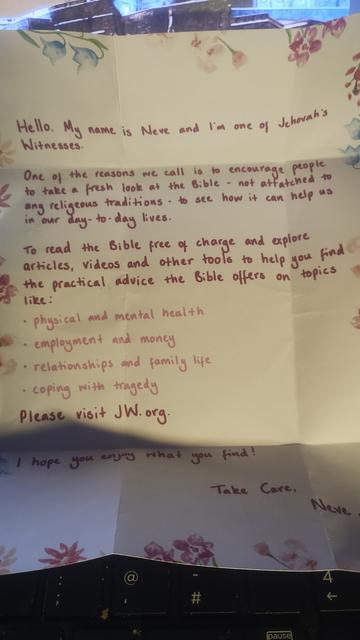 Hello. My name is Neve and I'm one of Jehovah's
Witnesses.
One of the reasons we call is to encourage people
to take a fresh look at the Bible - not attatched to
any religious traditions - to see how it can help us
in our day-to-day lives.
To read the Bible free of charge and explore
articles, videos and other tools to help you find
the practical advice the Bible offers on topics
like:
· physical and mental health
· employment and money
· relationships and family life
· coping with tragedy
Please visit JW.org.
I hope you enjoy what you find!
Take Care,
Neve.
: @ ~ 4
; ' # ←
pause